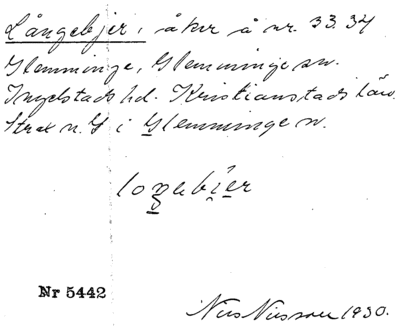 Långebjer, åker å nr. 33.34
Glemminge, Glemminge sn.
Ingelstads hd. Kristianstads län.
Strax n. G i Glemminge sn.
loŋebier
Nr 5442
Nils Nilsson 1930.